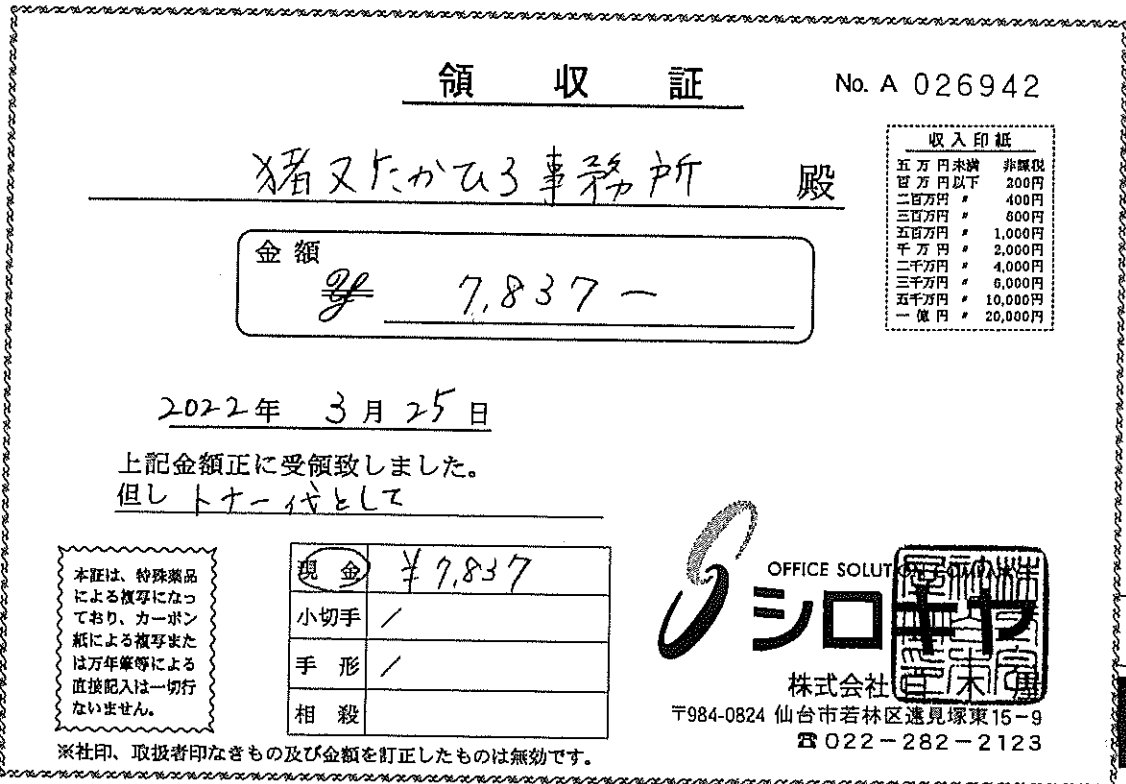 領 収 証
No. A 026942
猪又たかひろ事務所 殿
収入印紙
五万円未満 非課税
百万円以下 200円
二百万円 〃 400円
三百万円 〃 600円
五百万円 〃 1,000円
千万円 〃 2,000円
二千万円 〃 4,000円
三千万円 〃 6,000円
五千万円 〃 10,000円
一億円 〃 20,000円
金額
¥ 7,837-
2022年 3月25日
上記金額正に受領致しました。
但し トナー代として
本証は、特殊薬品
による複写になっ
ており、カーボン
紙による複写また
は万年筆等による
直接記入は一切行
ないません。
現 金 ¥7,837
小切手 /
手 形 /
相 殺
OFFICE SOLUTION
シロキヤ
株式会社
〒984-0824 仙台市若林区遠見塚東15-9
☎022-282-2123
※社印、取扱者印なきもの及び金額を訂正したものは無効です。